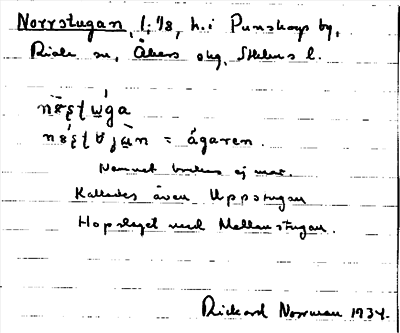 Norrstugan, l. 1/8, h. i Punskogs by,
Riala sn, Åkers skg, Sthlms l.
= ägaren.
Namnet brukas ej mer.
Kallades även Uppstugan
Hopslaget med Mellanstugan.
Rickard Norrman 1934.